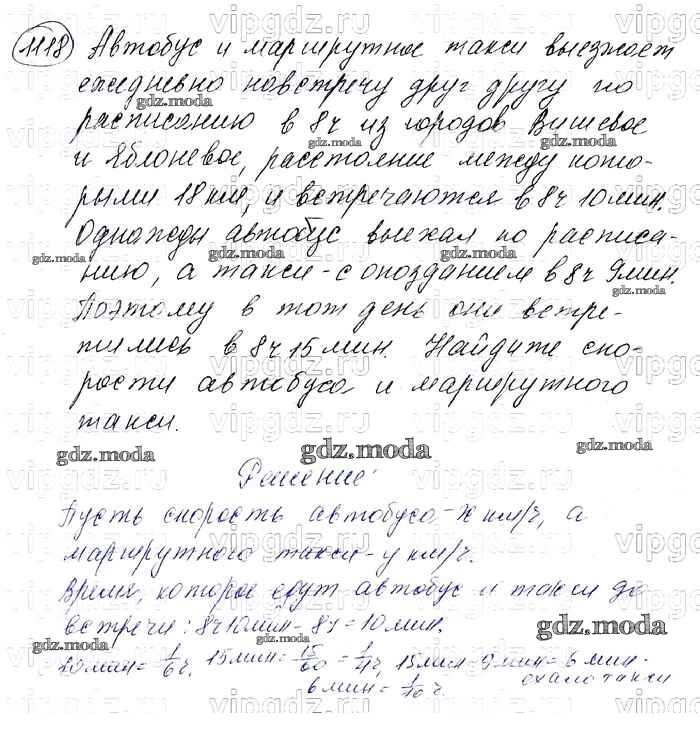 1118 Автобус и маршрутное такси выезжают
ежедневно навстречу друг другу по
расписанию в 8ч из городов Вишевое
и Яблоневое, расстояние между кото-
рыми 18 км, и встречаются в 8ч 10мин.
Однажды автобус выехал по расписа-
нию, а такси - с опозданием в 8ч 9мин.
Поэтому в тот день они встре-
тились в 8ч 15мин. Найдите ско-
рости автобуса и маршрутного
такси.
Решение
Пусть скорость автобуса - x км/ч, а
маршрутного такси - y км/ч.
Время, которое едут автобус и такси до
встречи: 8ч10мин - 8ч = 10мин.
10мин = 1/6 ч, 15мин = 15/60 = 1/4 ч, 15мин - 9мин = 6 мин -
6 мин = 1/10 ч ехало такси
gdz.moda
vipgdz.ru